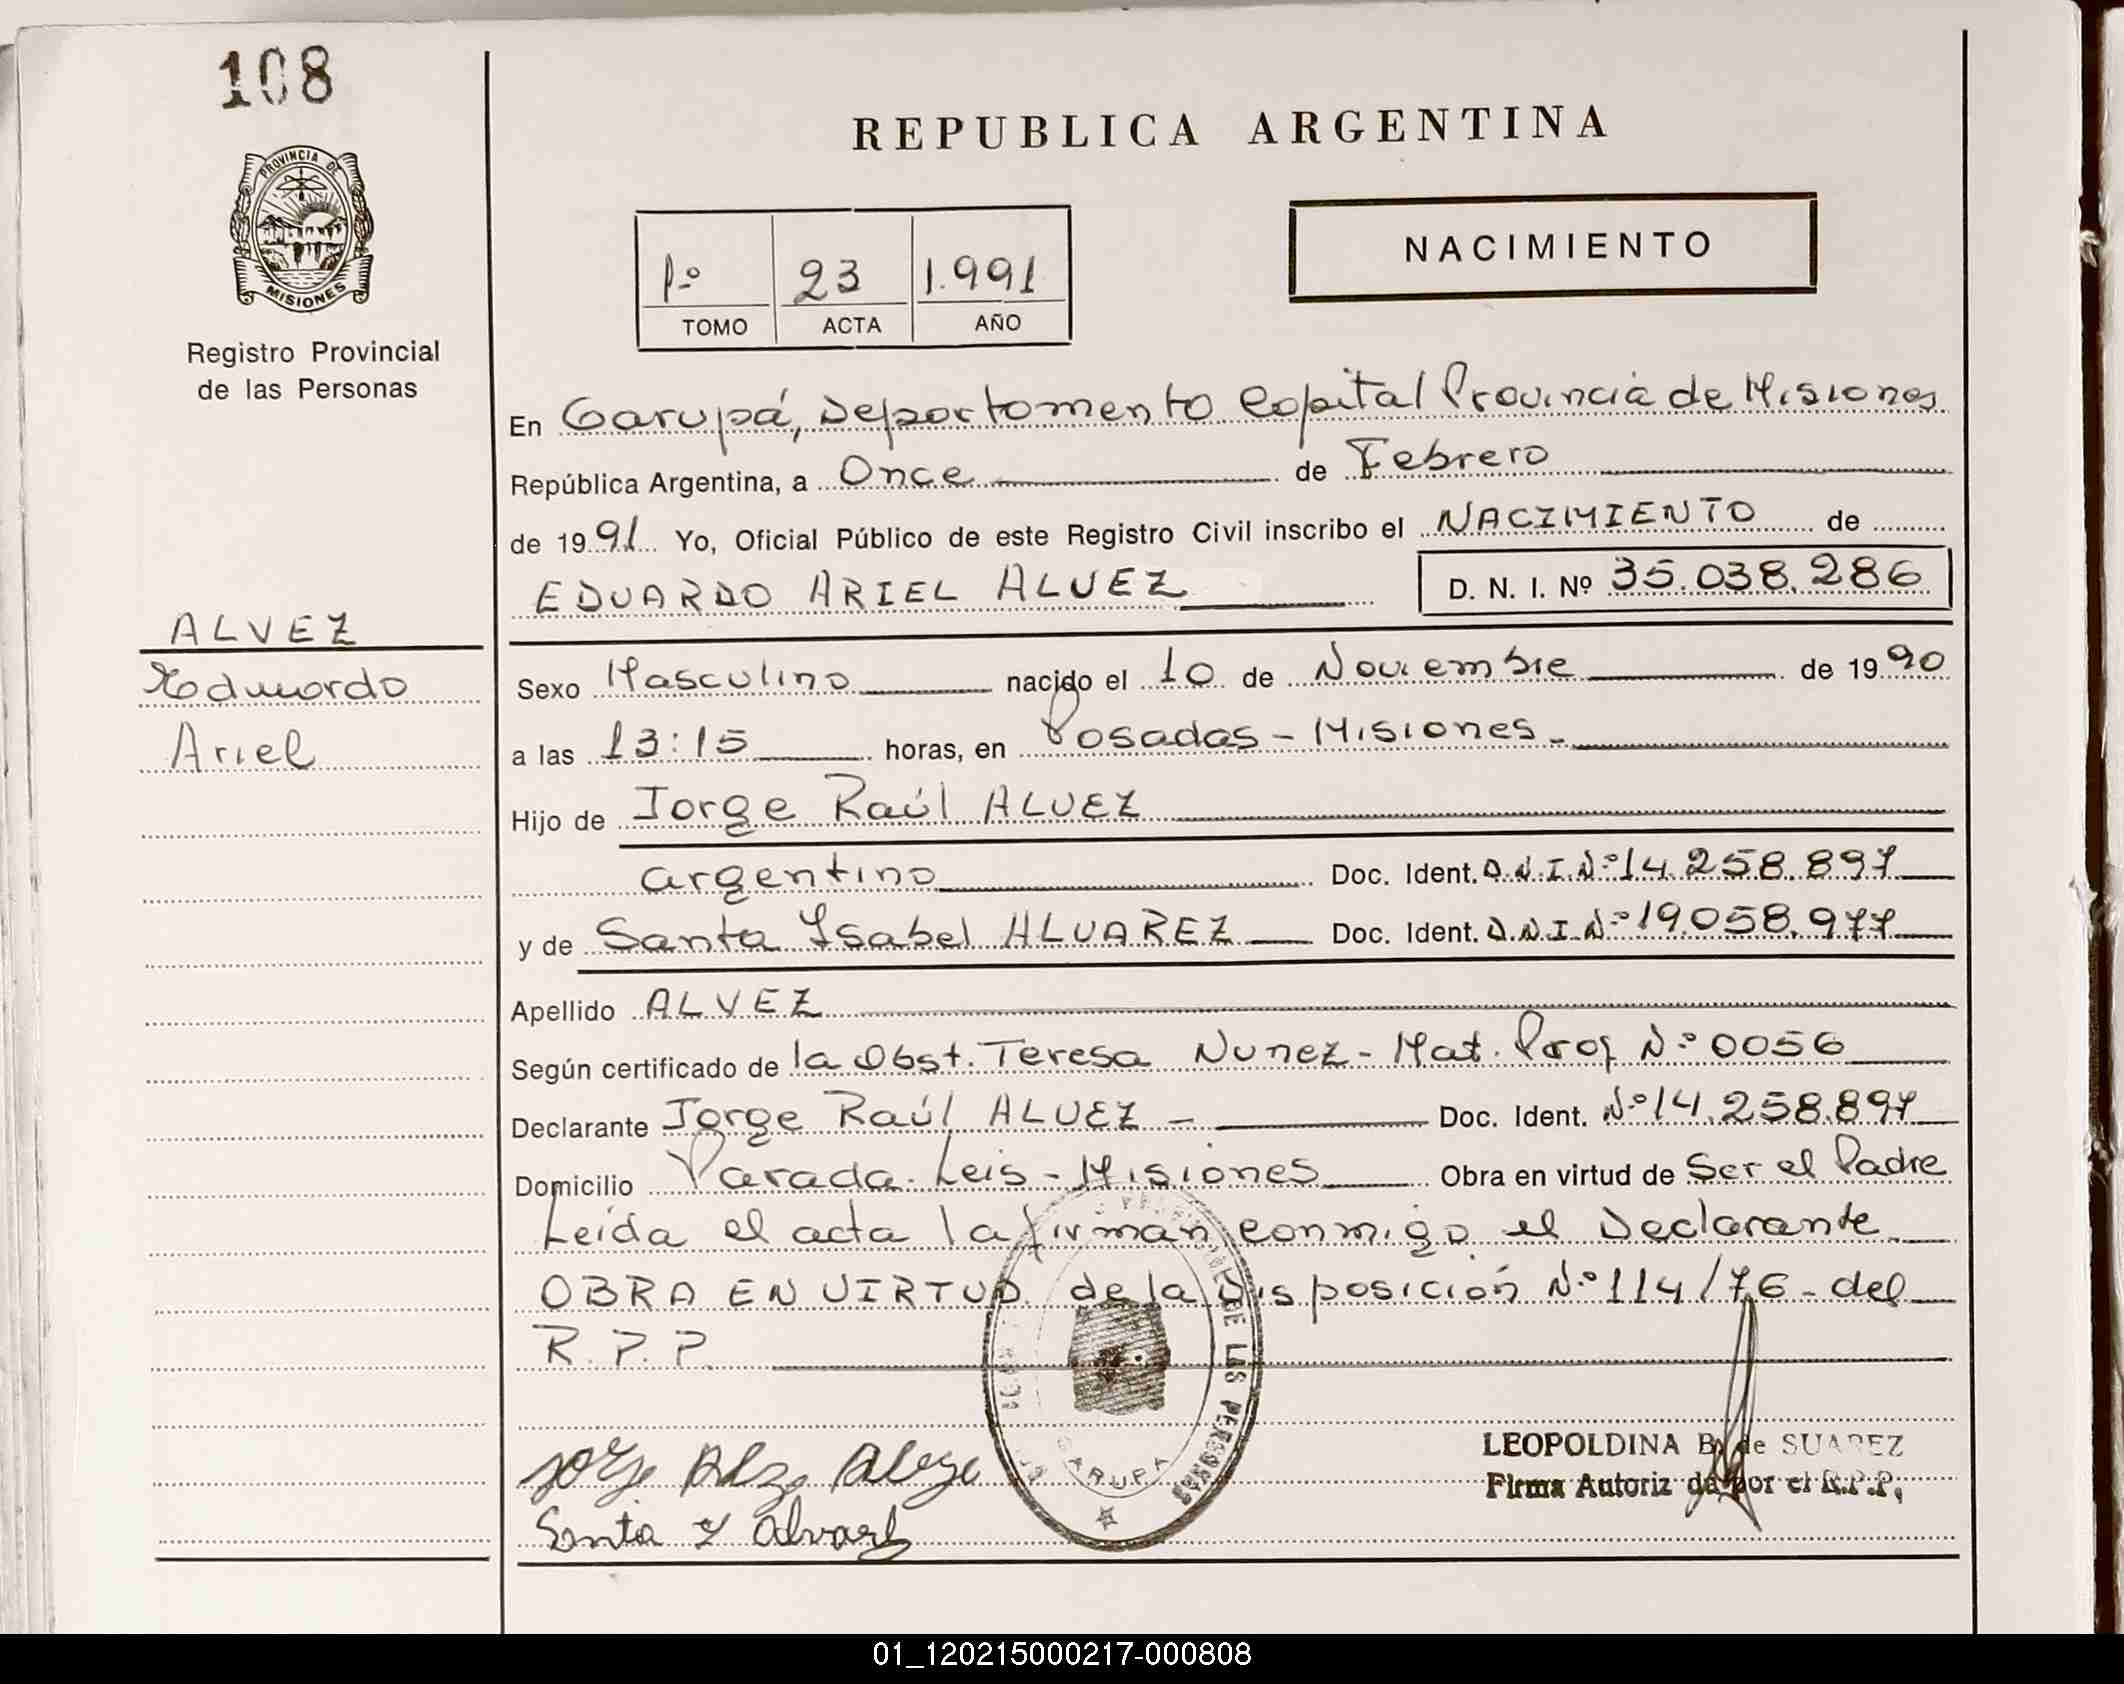 108
PROVINCIA DE
MISIONES
Registro Provincial
de las Personas
ALVEZ
Eduardo
Ariel
REPUBLICA ARGENTINA
1º 23 1.991
TOMO ACTA AÑO
NACIMIENTO
En Garupá, Departamento Capital Provincia de Misiones
República Argentina, a Once de Febrero
de 1991 Yo, Oficial Público de este Registro Civil inscribo el NACIMIENTO de
EDUARDO ARIEL ALVEZ D. N. I. Nº 35.038.286
Sexo Masculino nacido el 10 de Noviembre de 1990
a las 13:15 horas, en Posadas - Misiones -
Hijo de Jorge Raúl ALVEZ
argentino Doc. Ident. D.N.I.Nº 14.258.897
y de Santa Ysabel ALVAREZ Doc. Ident. D.N.I.Nº 19.058.977
Apellido ALVEZ
Según certificado de la Obst. Teresa Nunez - Mat. Prof Nº 0056
Declarante Jorge Raúl ALVEZ - Doc. Ident. Nº 14.258.897
Domicilio Parada Leis - Misiones Obra en virtud de Ser el Padre
Leida el acta la firman conmigo el Declarante
OBRA EN VIRTUD de la Disposición Nº 114/76 - del
R.P.P.
DE LAS PERSONAS
GARUPA
Jorge Alvez
Santa Y Alvarez
LEOPOLDINA B. de SUAREZ
Firma Autorizada por el R.P.P.
01_120215000217-000808